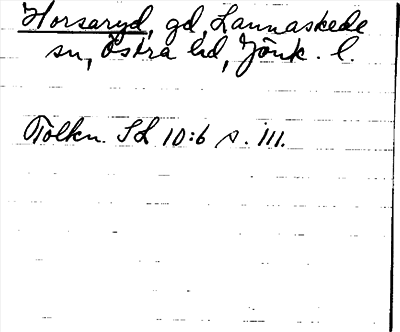 Horsaryd, gd, Lannaskede
sn, Östra hd, Jönk. l.
Tolkn. Sd 10:6 s. 111.